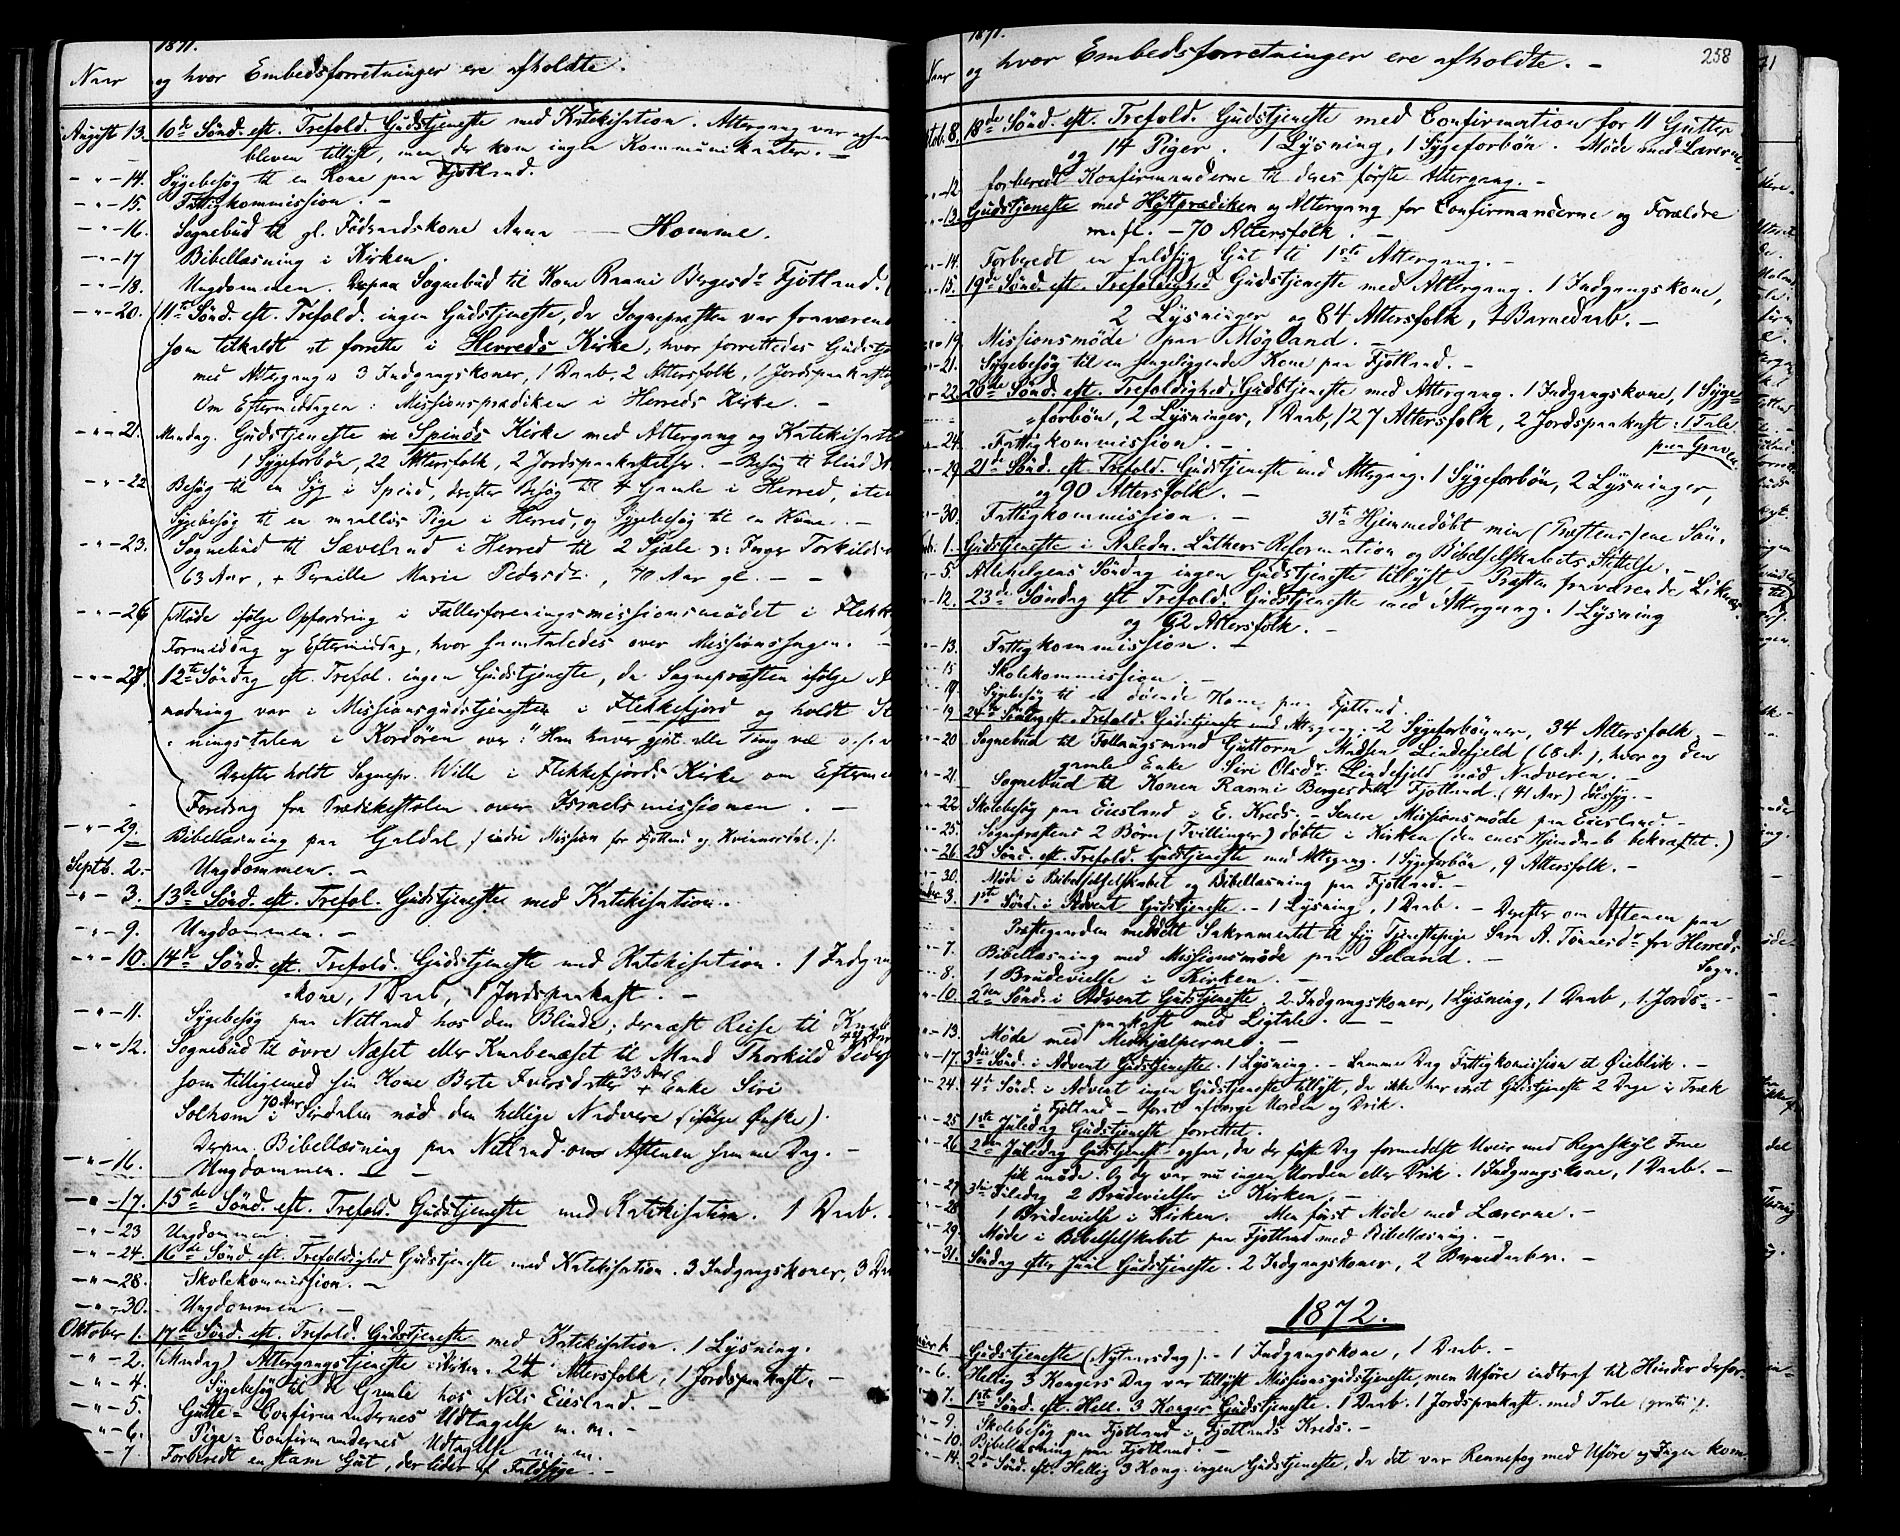 1871.
Naar og hvor Embedsforretninger ere afholdte.
August 13. 10de Sønd. eft. Trefold. Gudstjeneste med Katekisation. Altergang var ogsaa
bleven tillyst, men der kom ingen Kommunikanter. —
— „ — 14. Sygebesøg til en Kone paa Fjotland.
— „ — 15. Fattigkommission. —
— „ — 16. Sognebud til gl. Fødselskone Anna — Homme.
— „ — 17 Bibellæsning i Kirken.
— „ — 18. Ungdommen. Sognebud til Kone Ranni Bergesdr Fjotland.
— „ — 20. 11te Sønd. eft. Trefold. ingen Gudstjeneste, da Sognepresten var fraværende
som tilkaldt at forrette i Herreds Kirke, hvor forrettedes Gudstj
med Altergang, 3 Indgangskoner, 1 Daab, 2 Altersfolk, 1 Jordspaakastelse
Om Eftermiddagen: Missionsprædiken i Herreds Kirke. —
— „ — 21. Mandag. Gudstjeneste i Spinds Kirke med Altergang og Katekisation
1 Sygeforbøn, 22 Altersfolk, 2 Jordspaakastelser. — Besøg til blind
— „ — 22 Besøg til en Syg i Spind, derefter Besøg til 4 Gamle i Herred,
Sygebesøg til en maallös Pige i Herred, og Sygebesøg til en Kone. —
— „ — 23. Sognebud til Sæveland i Herred til 2 Sjæle: Inger Torkilds
63 Aar, + Pernille Marie Pedersdtr., 70 Aar gl. — —
— „ — 26 Møde ifølge Opfordring i Fællesforeningsmissionsmødet i Flekk
Formiddag og Eftermiddag, hvor samtaledes over Missionssagen. —
— „ — 27. 12te Søndag eft. Trefol. ingen Gudstjeneste, da Sognepresten ifølge
modning var i Missionsgudstjenesten i Flekkefjord og holdt
ningstalen i Kordøren over: "Han haver gjort alle Ting vel
Derefter holdt Sognepr. Wille i Flekkefjords Kirke om Efterm
Foredrag fra Prædikestolen over Israelsmissionen. —
— „ — 29. Bibellæsning paa Galdal (indre Mission for Fjotland og Kvinnesdal.)
Septb. 2. Ungdommen. —
— „ — 3. 13de Sønd. eft. Trefol. Gudstjeneste med Katekisation.
— „ — 9. Ungdommen. —
— „ — 10. 14de Sønd. eft. Trefold. Gudstjeneste med Katekisation. 1 Indgangs
kone, 1 Daab, 1 Jordspaakast. —
— „ — 11. Sygebesøg paa Netland hos den Blinde; dernæst Reise til
— „ — 12. Sognebud til övre Næset eller Knabenæset til Mand Thorkild Peders
som tilligemed sin Kone Berte Iversdatter 33 Aar + Enke Siri
Solhom 70 Aar i Sirdalen nød den hellige Nadvere (ifølge Ønske).
Derpaa Bibellæsning paa Netland om Aftenen samme Dag. —
— „ — 16. Ungdommen. — —
— „ — 17. 15de Sønd. eft. Trefold. Gudstjeneste med Katekisation. 1 Daab.
— „ — 23 Ungdommen. —
— „ — 24. 16de Sønd. eft. Trefoldighed Gudstjeneste med Katekisation. 3 Indgangskoner, 3 Daab
— „ — 28. Skolekommission. —
— „ — 30. Ungdommen. —
Oktober 1. 17de Sønd. eft. Trefold. Gudstjeneste med Katekisation. 1 Lysning.
— „ — 2. (Mandag) Altergangstjeneste i Kirken. 24 Altersfolk, 1 Jordspaakast. —
— „ — 4. Sygebesøg til de Gamle hos Nils Eiesland. —
— „ — 5. Gutte-Confirmandernes Udtagelse m. m. —
— „ — 6. Pige-Confirmandernes Udtagelse m. m.
— 7. Forberedt en stam Gut, der lider af Faldsyge. —
1871.
258
Naar og hvor Embedsforretninger ere afholdte. —
Oktob. 8. 18de Sønd. eft. Trefold. Gudstjeneste med Confirmation for 11 Gutter
og 14 Piger. 1 Lysning, 1 Sygeforbøn. Møde med Lærerne
— 12. forberedt Konfirmanderne til deres første Altergang. —
— 13. Gudstjeneste med Høitprædiken og Altergang for Confirmanderne og Forældre
m. fl. — 70 Altersfolk. —
— 14. Forberedt en faldsyg Gut til 1ste Altergang. —
— 15. 19de Sønd. eft. Trefoldighed Gudstjeneste med Altergang. 1 Indgangskone,
2 Lysninger og 84 Altersfolk, 1 Barnedaab. —
— 19. Missionsmøde paa Mögland. —
— 21. Sygebesøg til en sengeliggende Kone paa Fjotland. —
— 22. 20de Sønd. eft. Trefoldighed, Gudstjeneste med Altergang. 1 Indgangskone, 1 Syge-
forbøn, 2 Lysninger, 1 Daab, 127 Altersfolk, 2 Jordspaakast: 1 Tale
paa Graven.
— 24. Fattigkommission. —
— 29. 21de Sønd. eft. Trefold. Gudstjeneste med Altergang. 1 Sygeforbøn, 2 Lysninger,
og 90 Altersfolk. —
— 30. Fattigkommission. — 31te Hjemmedøbt min (Præstens) ene Søn.
1. Gudstjeneste i Anledn. Luthers Reformation og Bibelselskabets Stiftelse. —
— 5. Allehelgens Søndag ingen Gudstjeneste tillyst — Præsten fraværende
— 12. 23de Søndag eft. Trefold. Gudstjeneste med Altergang. 1 Lysning
og 62 Altersfolk. —
— 13. Fattigkommission. —
— 15 Skolekommission. —
— 17. Sygebesøg til en døende Kone paa Fjotland.
— 19 24de Søndag eft. Trefold. Gudstjeneste med Altergang; 2 Sygeforbønner, 34 Altersfolk. —
— 20 Sognebud til Føllaugsmand Guttorm Madsen Lindefjeld (68 A.), hvor og den
gamle Enke Siri Olsdr. Lindefjeld nød Nadveren. —
— 21. Sognebud til Konen Ranni Bergesdatt. Fjotland. (41 Aar) dødssyg. —
— 22 Skolebesøg paa Eiesland i E. Kreds. — Senere Missionsmøde paa Eiesland. —
— 25. Sognepræstens 2 Børn (Tvillinger) døbte i Kirken (den enes Hjemdaab bekræftet.)
— 26 25 Sønd. eft. Trefold. Gudstjeneste med Altergang. 1 Sygeforbøn, 9 Altersfolk. —
— 30. Møde i Bibelselskabet og Bibellæsning paa Fjotland. —
3. 1ste Sønd. i Advent Gudstjeneste. — 1 Lysning, 1 Daab. — Derefter om Aftenen paa
Præstegaarden meddelt Sakramentet til syg Tjenestepige Sara A. Tønnesdr fra Herreds
Sogn.
— 7. Bibellæsning med Missionsmøde paa Seland. —
— 8. 1 Brudevielse i Kirken. —
— 10. 2den Sønd. i Advent Gudstjeneste. 2 Indgangskoner, 1 Lysning, 1 Daab, 1 Jords-
paakast med Ligtale. —
— 13. Møde med Medhjælperne. —
— 17. 3die Sønd. i Advent Gudstjeneste. 1 Lysning. — Samme Dag Fattigkommission et Øieblik. —
— 24. 4de Sønd. i Advent ingen Gudstjeneste tillyst, da ikke har været Gudstjeneste 2 Dage i Træk
i Fjotland — forat afværge Uorden og Drik.
— 25 1ste Juledag Gudstjeneste forrettet.
— 26 2den Juledag Gudstjeneste ogsaa, da der første Dag formedelst Uveir med Regnskyl Faae
fik møde. Og der var nu ingen Uorden eller Drik. 1 Indgangskone, 1 Daab. —
— 27. 3die Juledag 2 Brudevielser i Kirken. —
— 28 1 Brudevielse i Kirken. Men først Møde med Lærerne. —
— 29. Møde i Bibelselskabet paa Fjotland med Bibellæsning. —
— 31. Søndag efter Juul Gudstjeneste. 2 Indgangskoner, 2 Barnedaaber. —
1872.
1. Gudstjeneste (Nytaarsdag). — 1 Indgangskone, 1 Daab. —
— 6. Hellig 3 Kongers Dag var tillyst Missionsgudstjeneste, men Uføre indtraf til Hinder derfor. —
— 7. 1ste Sønd. eft. Hell. 3 Konger Gudstjeneste. 1 Daab. 1 Jordspaakast med Tale (gratis).
— 9. Skolebesøg paa Fjotland i Fjotlands Kreds. —
— 10. Bibellæsning paa Fjotland. —
— 14. 2de Sønd. eft. Hellig 3 Kong. ingen Gudstjeneste, da det var Rennefog med Uføre og Ingen kom